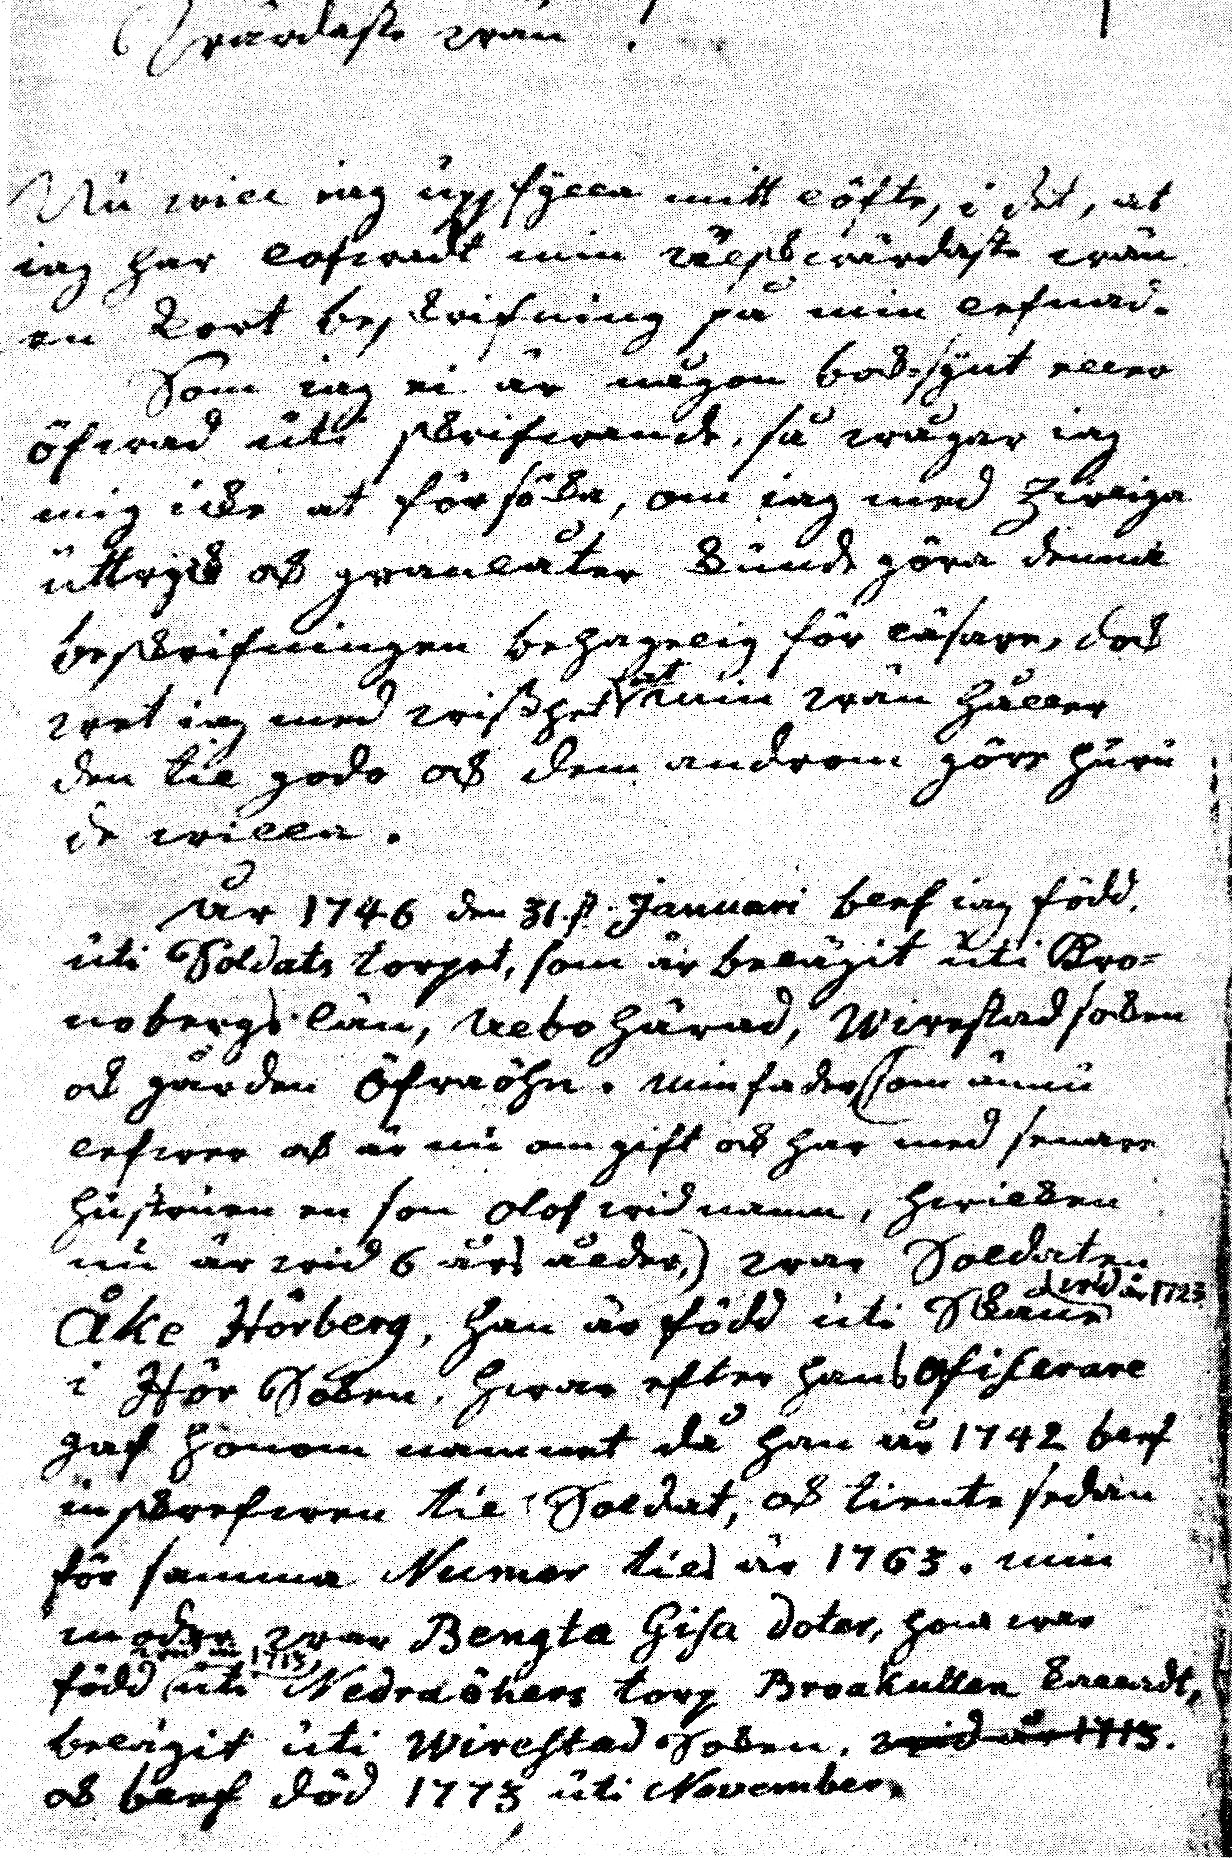 wärdaste wän!
Nu will iag uppfylla mitt löfte, i det, at
iag har lofwadt min älskwärdaste wän
en kort beskrifning på min lefnad.
Som iag ei är någon bok-synt eller
öfwad uti skrifwande, så wågar iag
mig icke at försöka, om iag med Zirliga
uttryck och granlåter kunde göra denna
beskrifningen behagelig för läsare, dock
wet iag med wisshet at min wän håller
den til godo och dem androm göre huru
de willa.
År 1746 den 31.st. Januari blef iag född,
uti Soldats torpet, som är belägit uti Cro-
nobergs län, Albo härad, Wirestad socken
och gården Öfraöhn. min fader (som ännu
lefwer och är nu omgift och har med senare
hustruen en son Olof wid namn, hwilken
nu är wid 6 års ålder,) war Soldaten
Åke Hörberg, han är född uti Skåne wid år 1723
i Hör Socken, hwar efter hans Officerare
gaf honom namnet då han år 1742 blef
inskrefwen til Soldat, och tiente sedan
för samma Numer til år 1763. min
moder war Bengta Gisa doter, hon war
född wid år 1715, uti Nedraöhens torp Broakullen kalladt,
belägit uti Wirestad Socken. wid år 1715.
och blef död 1773 uti November,